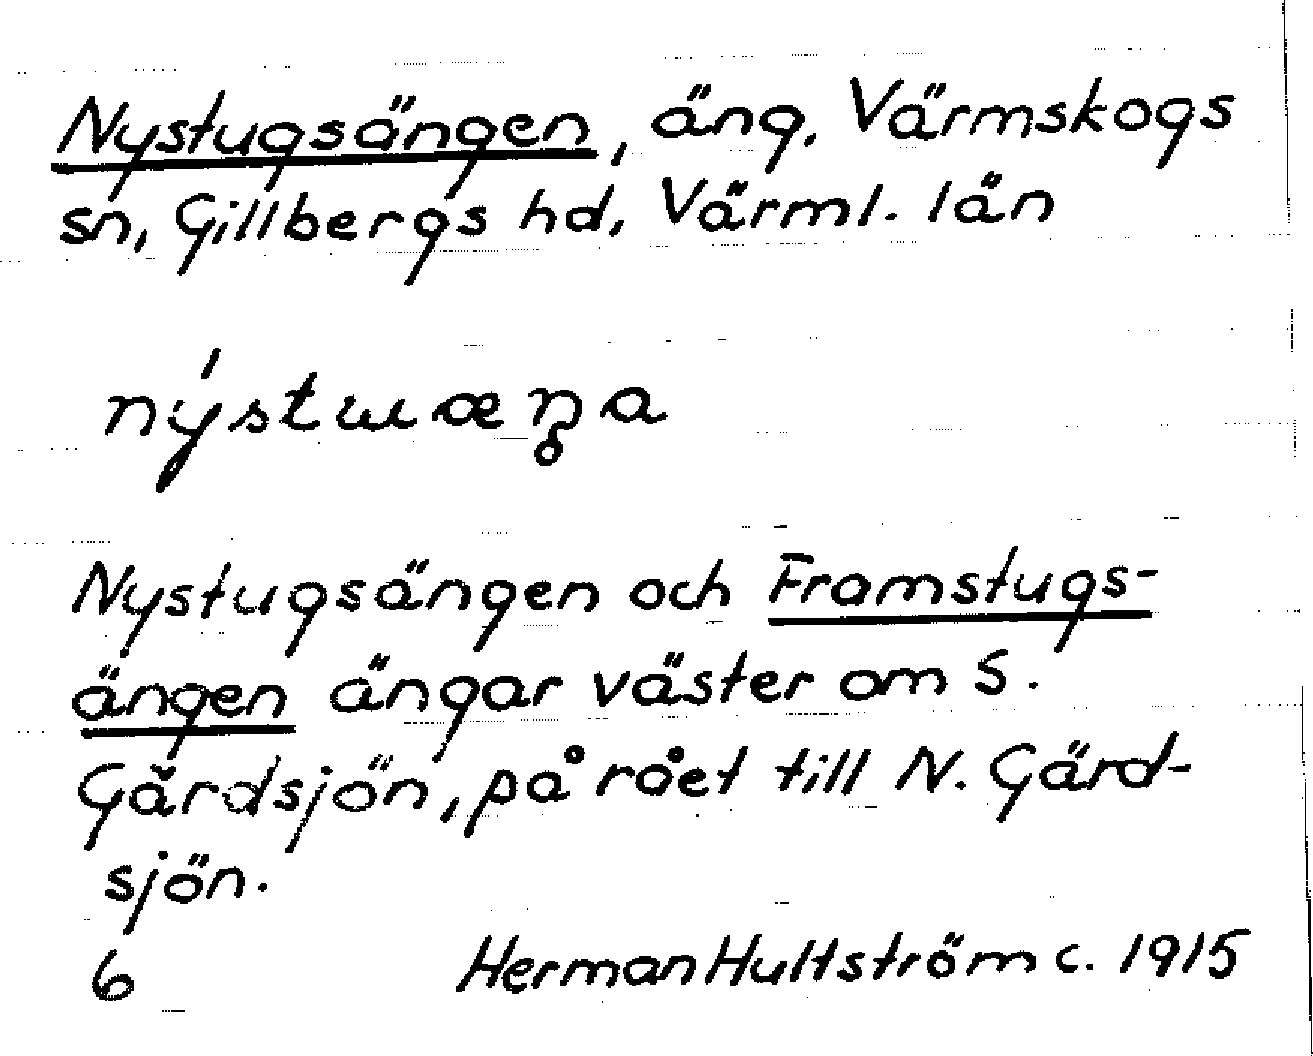 Nystugsängen, äng, Värmskogs
sn, Gillbergs hd, Värml. län
nýstɯæŋa
Nystugsängen och Framstugs-
ängen ängar väster om S.
Gärdsjön, på rået till N. Gärd-
sjön.
6 Herman Hultström c. 1915